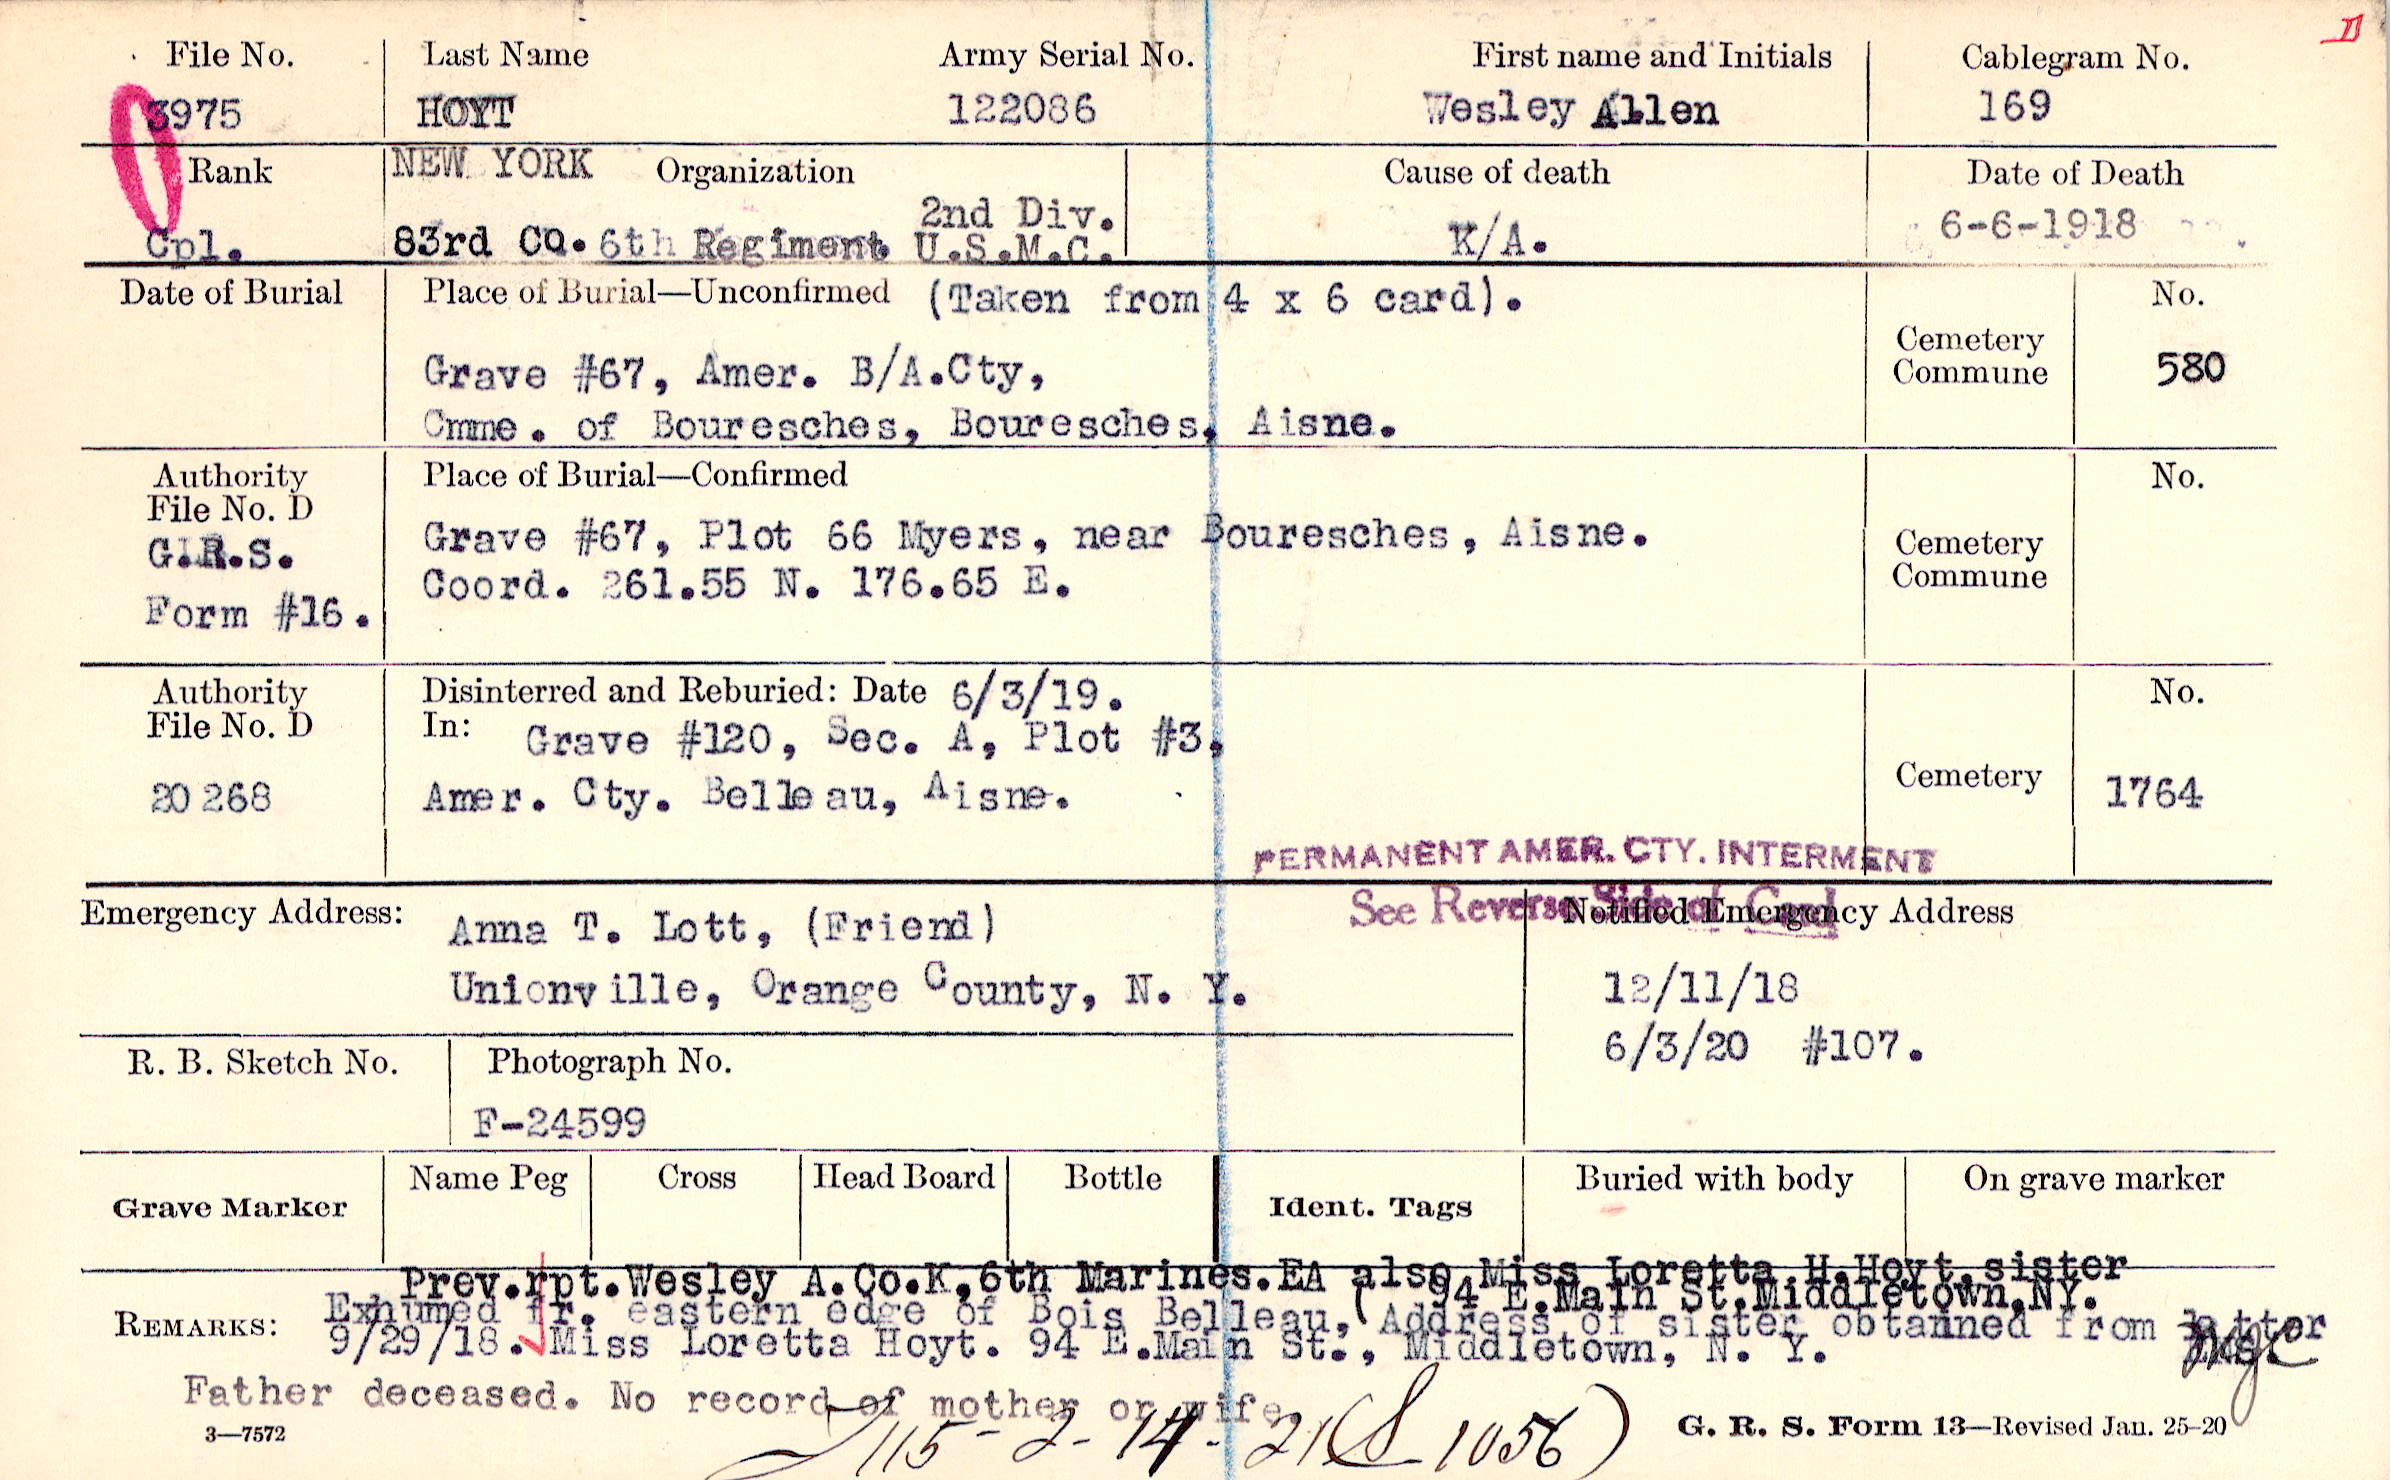 D
File No. Last Name Army Serial No. First name and Initials Cablegram No.
3975 HOYT 122086 Wesley Allen 169
Rank NEW YORK Organization Cause of death Date of Death
2nd Div.
Cpl. 83rd CO. 6th Regiment U.S.M.C. K/A. 6-6-1918
Date of Burial Place of Burial—Unconfirmed (Taken from 4 x 6 card). No.
Grave #67, Amer. B/A.Cty, Cemetery Commune 580
Cmme. of Bouresches, Bouresches, Aisne.
Authority Place of Burial—Confirmed No.
File No. D
G.R.S. Grave #67, Plot 66 Myers, near Bouresches, Aisne. Cemetery
Form #16. Coord. 261.55 N. 176.65 E. Commune
Authority Disinterred and Reburied: Date 6/3/19. No.
File No. D In: Grave #120, Sec. A, Plot #3,
20 268 Amer. Cty. Belleau, Aisne. Cemetery 1764
PERMANENT AMER. CTY. INTERMENT
See Reverse Side of Card
Emergency Address: Anna T. Lott, (Friend) Notified Emergency Address
Unionville, Orange County, N. Y. 12/11/18
6/3/20 #107.
R. B. Sketch No. Photograph No.
F-24599
Grave Marker Name Peg Cross Head Board Bottle Ident. Tags Buried with body On grave marker
Prev.rpt.Wesley A.Co.K,6th Marines.EA also Miss Loretta H.Hoyt,sister
94 E.Main St.Middletown,NY.
REMARKS: Exhumed fr. eastern edge of Bois Belleau, (Address of sister obtained from letter
9/29/18. Miss Loretta Hoyt. 94 E.Main St., Middletown, N. Y.
Father deceased. No record of mother or wife
3—7572 115-2-14-21 (S 1056) G. R. S. Form 13—Revised Jan. 25-20